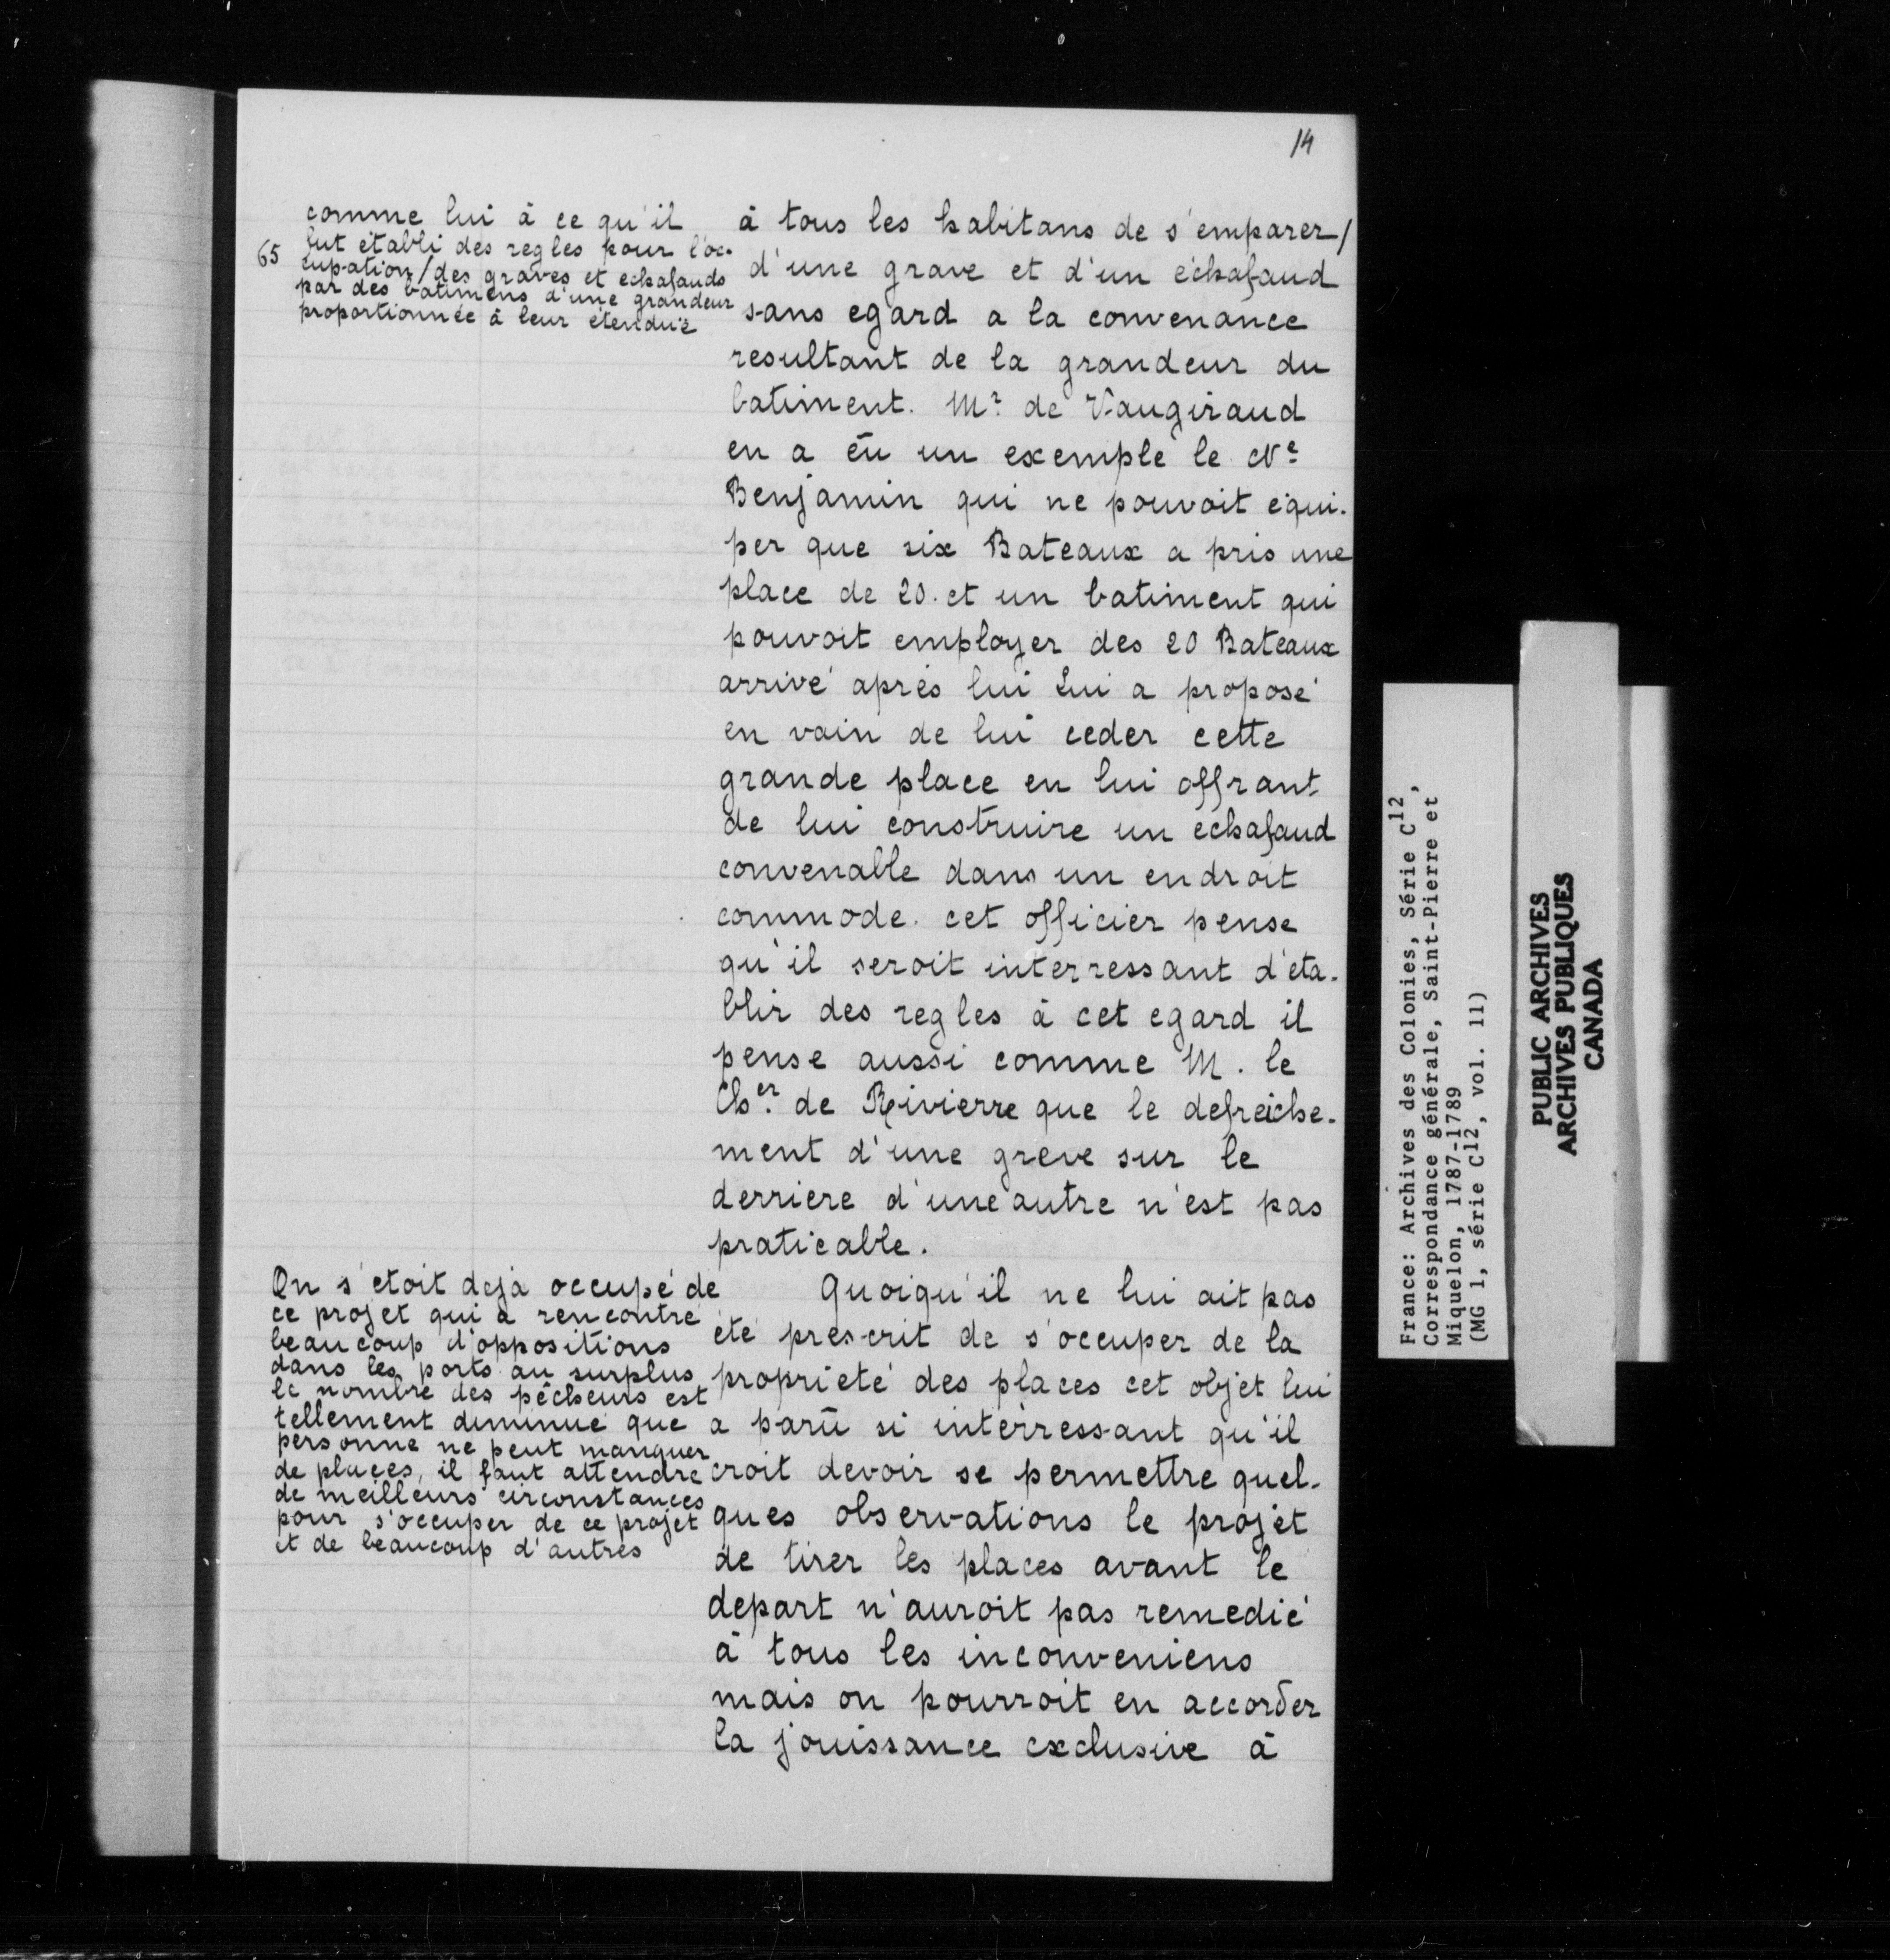 14
comme lui à ce qu'il
fut établi des regles pour l'oc-
65
cupation/des graves et echafauds
par des batimens d'une grandeur
proportionnée à leur étenduë
à tous les habitans de s'emparer/
d'une grave et d'un échafaud
sans egard a la convenance
resultant de la grandeur du
batiment. Mr. de Vaugiraud
en a éu un exemple le Ne.
Benjamin qui ne pouvoit equi-
per que six Bateaux a pris une
place de 20. et un batiment qui
pouvoit employer des 20 Bateaux
arrivé aprés lui Lui a proposé
en vain de lui ceder cette
grande place en lui offrant
de lui construire un echafaud
convenable dans un endroit
commode. cet officier pense
qu'il seroit interressant d'éta-
blir des regles à cet egard il
pense aussi comme M. le
Cher. de Rivierre que le defreiche-
ment d'une greve sur le
derriere d'une autre n'est pas
praticable.
On s'etoit dejà occupé de
ce projet qui a rencontré
beaucoup d'oppositions
dans les ports au surplus
le nombre des pêcheurs est
tellement diminué que
personne ne peut manquer
de places, il faut attendre
de meilleurs circonstances
pour s'occuper de ce projet
et de beaucoup d'autres
Quoiqu'il ne lui ait pas
eté prescrit de s'occuper de la
proprieté des places cet objet lui
a parû si intèrressant qu'il
croit devoir se permettre quel-
ques observations le projet
de tirer les places avant le
depart n'auroit pas remedié
à tous les inconveniens
mais on pourroit en accorder
la jouissance exclusive à
France: Archives des Colonies, Série C12,
Correspondance générale, Saint-Pierre et
Miquelon, 1787-1789
(MG 1, série C12, vol. 11)
PUBLIC ARCHIVES
ARCHIVES PUBLIQUES
CANADA